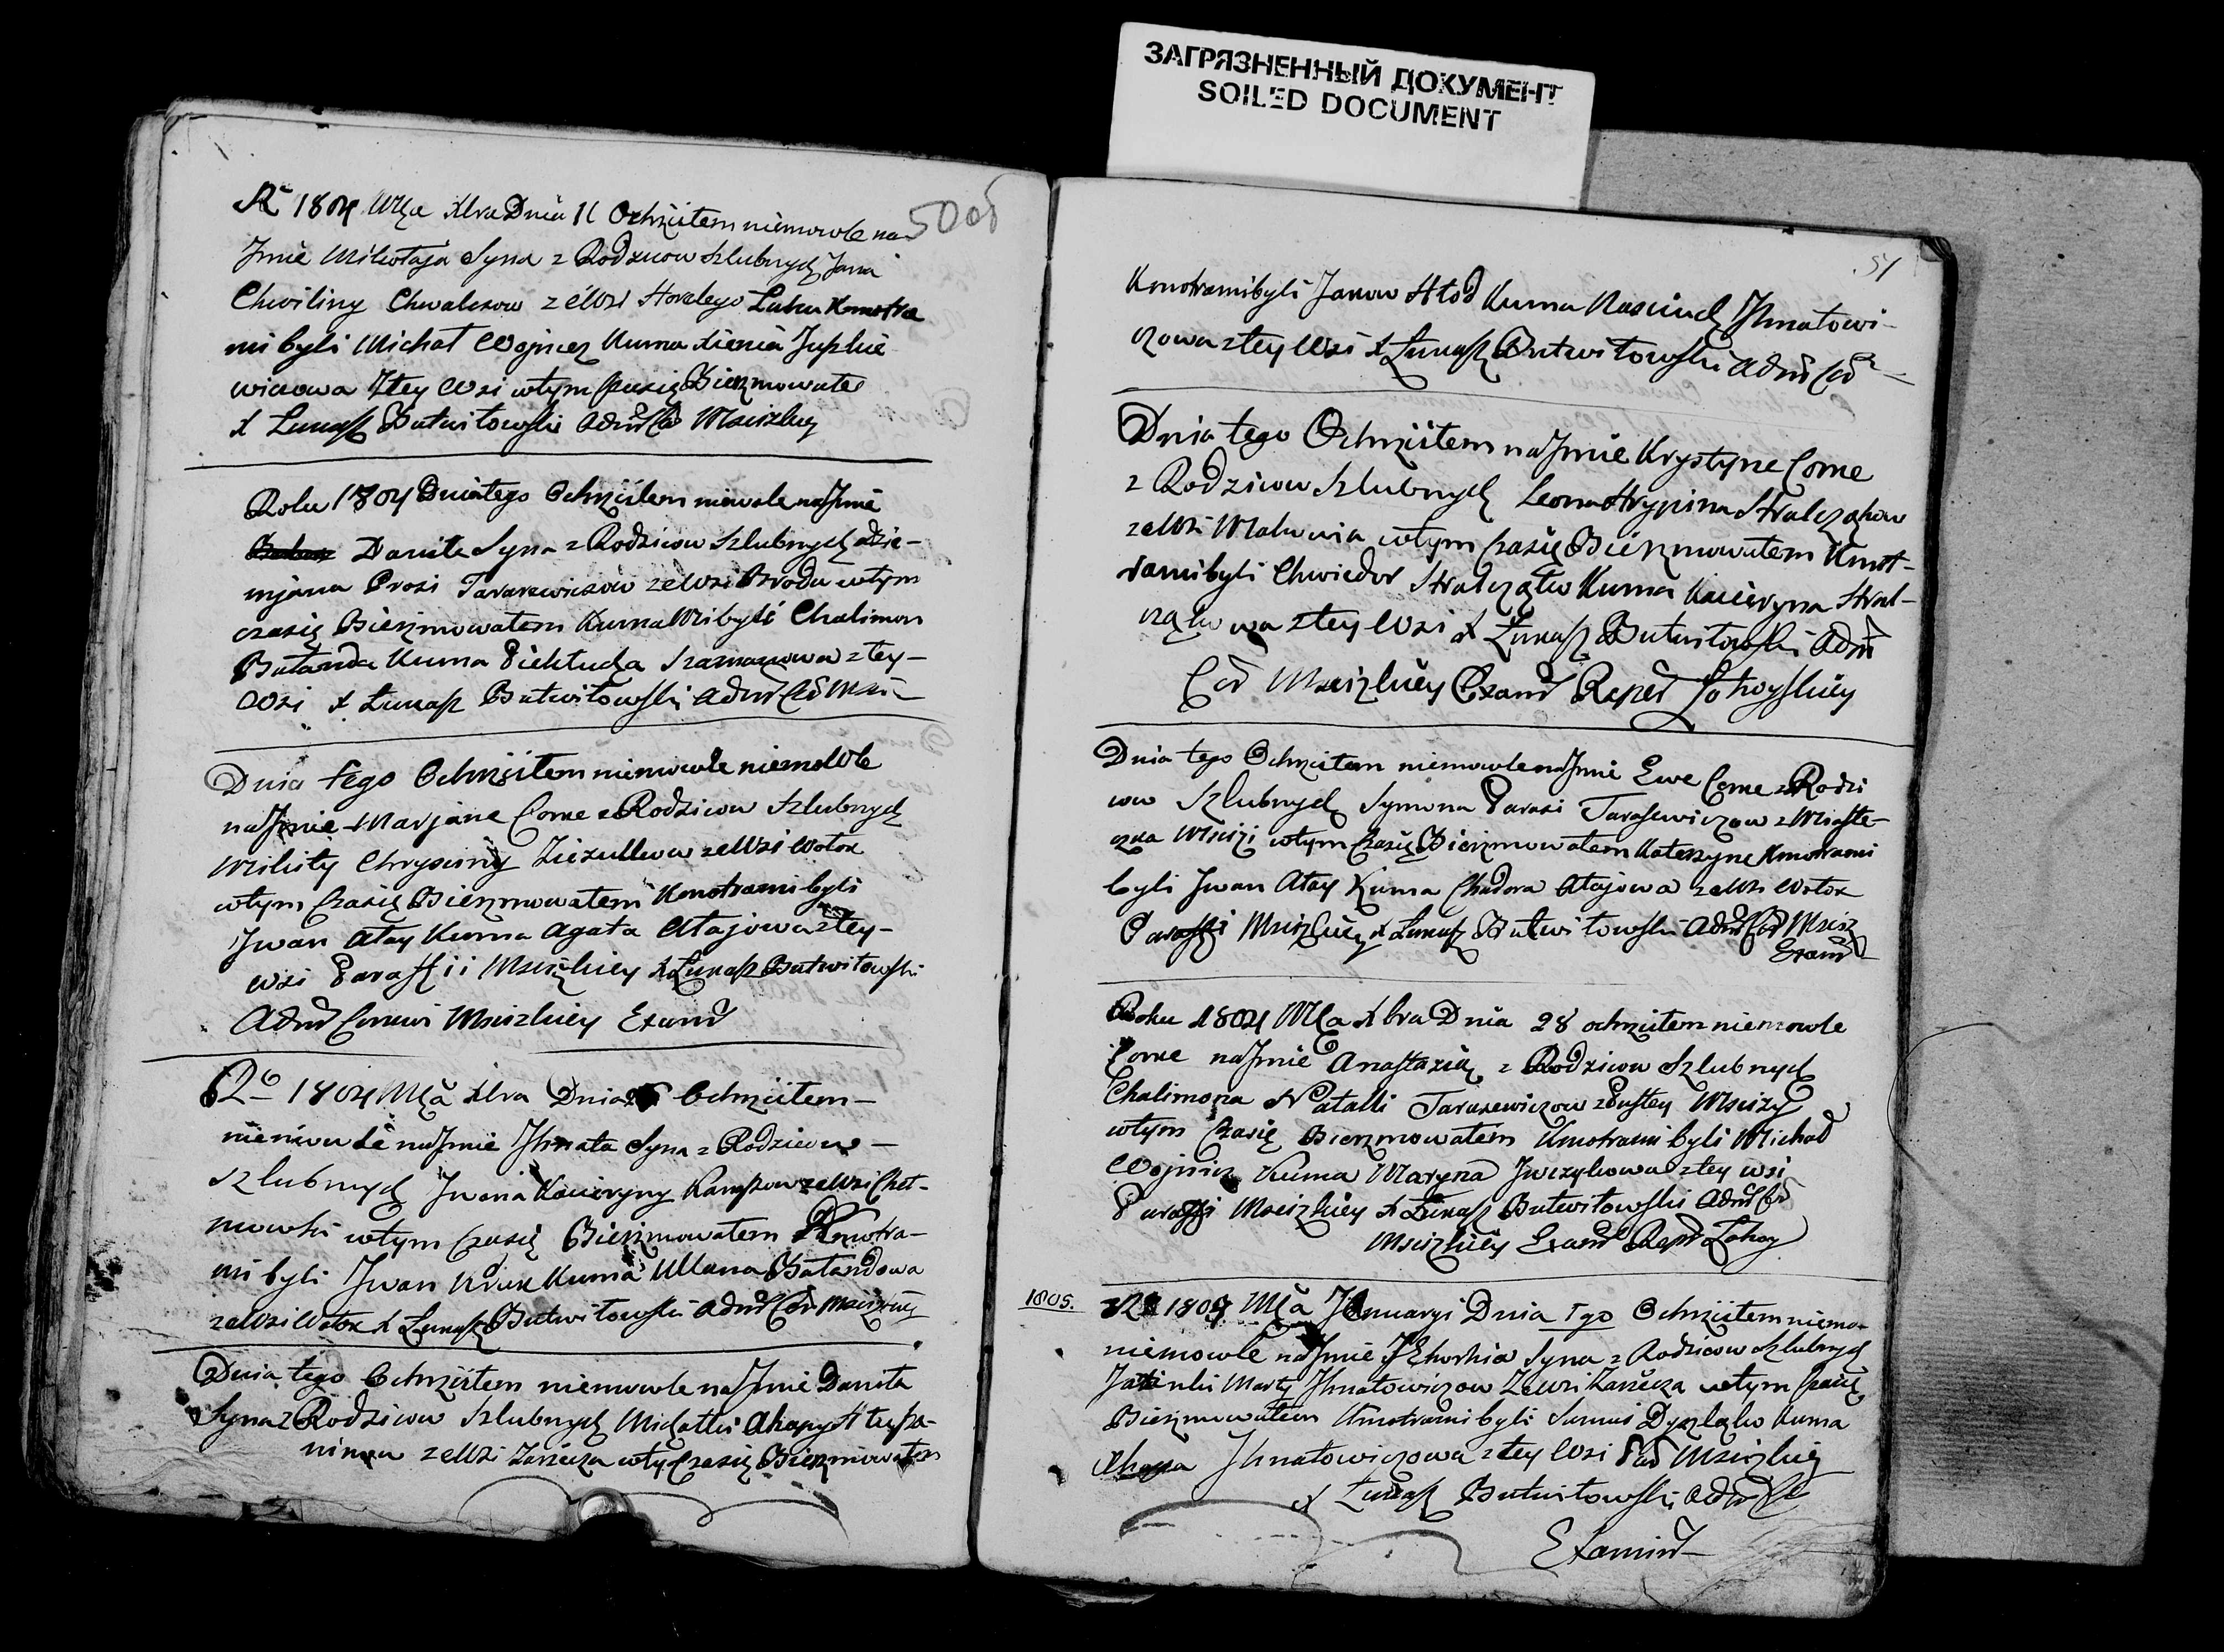 ЗАГРЯЗНЕННЫЙ ДОКУМЕНТ
SOILED DOCUMENT
50об
Rº 1804 Mca Xbra Dnia 11 Ochrzciłem niemowle na
Jmie Mikołaja Syna z Rodzicow Szlubnych Jana
Chwiliny Chwalkow z ewsi Horelego Kmotra
mi byli Michał Woynicz Kuma Xienia Jupkie
wiczowa ztey Wsi wtym Czasię Bierzmowałe
X Łukasz Butwiłowski Admr Cer Mscizkiey
Roku 1804 Dnia tego Ochrzciłem niewole na Jmie
Daniła Syna z Rodzicow Szlubnych Dzie-
mjana Prosi Tararewiczow ze Wsi Brodu wtym
czasię Bierzmowałem Kuma Mi byli Chalimon
Bułanda Kuma Piektuda ztey-
Wsi X Łukasz Butwiłowski Admr Cer Msci
Dnia tego Ochrzciłem niemowle niemowle
na Jmie Marjane Corne z Rodzicow Szlubnych
Mikity Chrysciny ze Wsi Wołok
wtym Czasię Bierzmowałem Kmotrami byli
Jwan Ałay Kuma Agata Ałajowa ztey-
wsi Paraffii Mscizkiey X Łukasz Butwiłowski
Admr Cerkwi Mscizkiey Exand
Rº 1804 Mca Xbra Dnia Ochrzciłem-
niemowle na Jmie Jhnata Syna z Rodzicow-
Szlubnych Jwana Kacieryny ze Wsi Cheł-
mowki wtym Czasię Bierzmowałem Kmotra-
mi byli Jwan Kruk Kuma Ullana Bałandowa
ze Wsi Wołok X Łukasz Butwiłowski Admr Cer Mscizkiey
Dnia tego Ochrzciłem niemowle na Jmie Daniła
Syna z Rodzicow Szlubnych Michałki Ahapy
ze Wsi Zarzecza wty Czasię Bierzmowałem
51
Kmotrami byli Janow Hłod Kuma Nasciuch Jhnatowi-
czowa ztey Wsi X Łukasz Butwiłowski Admr Cer
Dnia tego Ochrzciłem na Jmie Krystyne Corne
z Rodzicow Szlubnych Leona Hrypina Stralczakow
ze Wsi wtym Czasię Bierzmowałem Kmot-
rami byli Chwiedor Stralczątko Kuma Kacieryna Stral-
czątkowa ztey Wsi X Łukasz Butwiłowski Admr
Cer Mscizkiey Exand Reped Łohoyskiey
Dnia tego Ochrzciłem niemowle na Jmie Ewe Corne z Rodzi
cow Szlubnych Symona Parasi Tarasewiczow z Miaste-
czka Mscizi wtym Czasię Bierzmowałem Katerzyne Kmotrami
byli Jwan Ałay Kuma Chudora Ałajowa ze Wsi Wołok
Paraffi Mscizkiey X Łukasz Butwiłowski Admr Cer Mscizk
Exand
Roku 1804 Mca Xbra Dnia 28 ochrzciłem niemowle
Corne na Jmie Anastazią z Rodzicow Szlubnych
Chalimona Natalli Tarasewiczow z Pustey Mscizy
wtym Czasię Bierzmowałem Kmotrami byli Michał
Woynicz Kuma Maryna Jwczykowa ztey wsi
Paraffi Mscizkiey X Łukasz Butwiłowski Admr Cer
Mscizkiey Exand Reped Łohoy
1805. Rº 1805 Mca Januaryi Dnia 1go Ochrzciłem niemo-
niemowle na Jmie Syna z Rodzicow Szlubnych
Marty Jhnatowiczow ze Wsi Zarzecza wtym Czasię
Bierzmowałem Kmotrami byli Kuma
Jhnatowiczowa ztey Wsi Par Mscizkiey
X Łukasz Butwiłowski Admr Cer
Examind